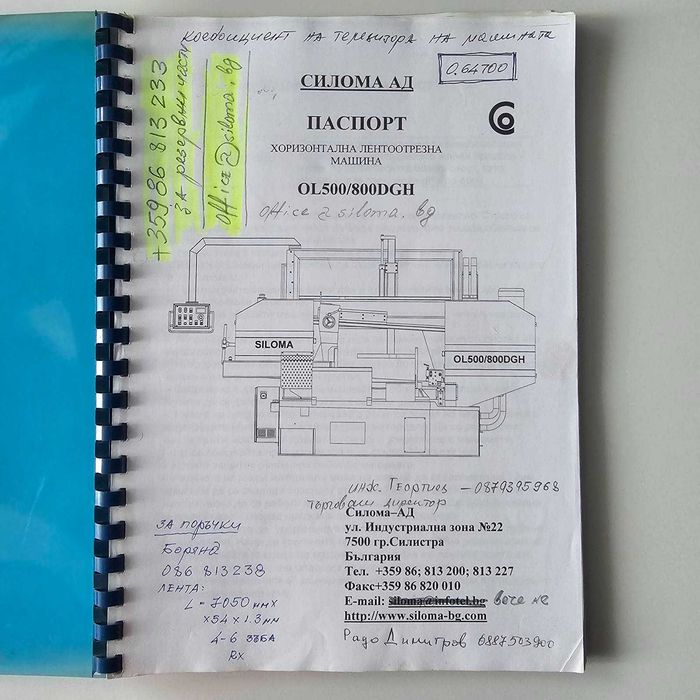 коефициент на терезитора на машината
0.64700
+359 86 813 233
за резервни части
office@siloma.bg
СИЛОМА АД
ПАСПОРТ
ХОРИЗОНТАЛНА ЛЕНТООТРЕЗНА
МАШИНА
OL500/800DGH
office@siloma.bg
SILOMA
OL500/800DGH
инж. Георгиев – 0879395968
търговски директор
Силома–АД
ул. Индустриална зона №22
7500 гр.Силистра
България
Тел. +359 86; 813 200; 813 227
Факс+359 86 820 010
E-mail: siloma@infotel.bg вече не
http://www.siloma-bg.com
Радо Димитров 0887503900
ЗА поръчки
Боряна
086 813238
ЛЕНТА:
L = 7050 mm x
x 54 x 1.3 mm
4-6 зъба
RX